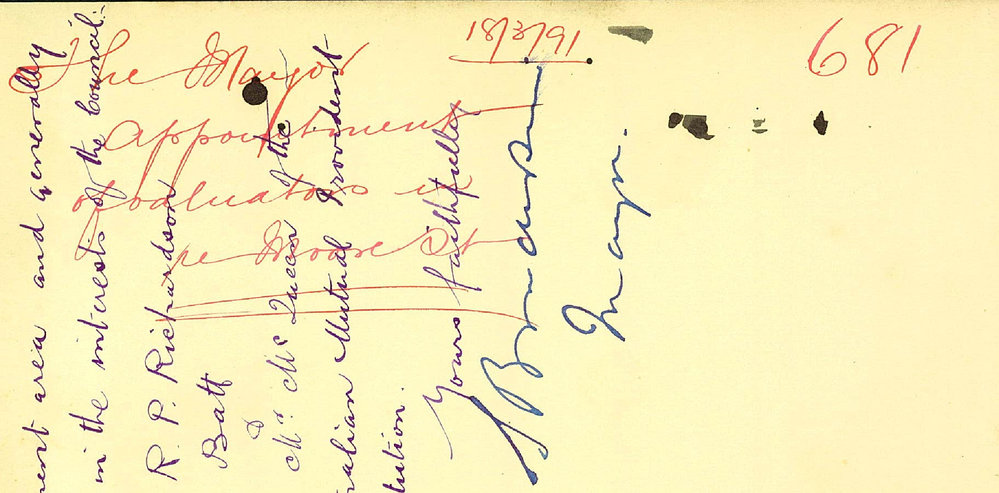 18/3/91
681
The Mayor
appointment
of valuators in
re Moore St
ment area and generally
in the interests of the Council.
R. P. Richardson
Batt
&
Mr. McQueen of the
ralian Mutual Provident
tution.
Yours faithfully
Mayor.